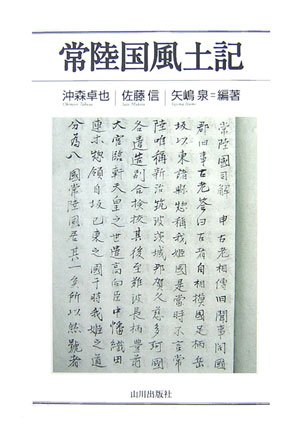 常陸国風土記
沖森卓也 佐藤信 矢嶋泉=編著
Okimori Takuya Sato Makoto Yajima Izumi
常陸國司解 申古老相傳旧聞事
郡旧事古老答曰古者自相摸國足柄岳
坂以東諸縣惣稱我姫國是當時不言常
陸唯稱新治筑波茨城那賀久慈多珂國
各遣造別令検挍其後至難波長柄豊前
大宮臨軒天皇之世遣高向臣中幡織田
連等惣領自坂已東之國于時我姫之道
分為八國常陸國居其一矣所以然號者
山川出版社